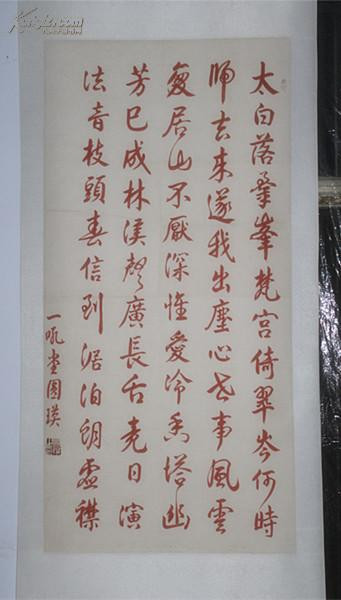 太白落叠峯梵宮倚翠岑何時
歸去来遂我出塵心世事風雲
變居山不厭深惟愛冷香塔幽
芳已成林溪聲廣長舌竟日演
法音枝頭春信到泊朗虛襟
一吼堂圓瑛